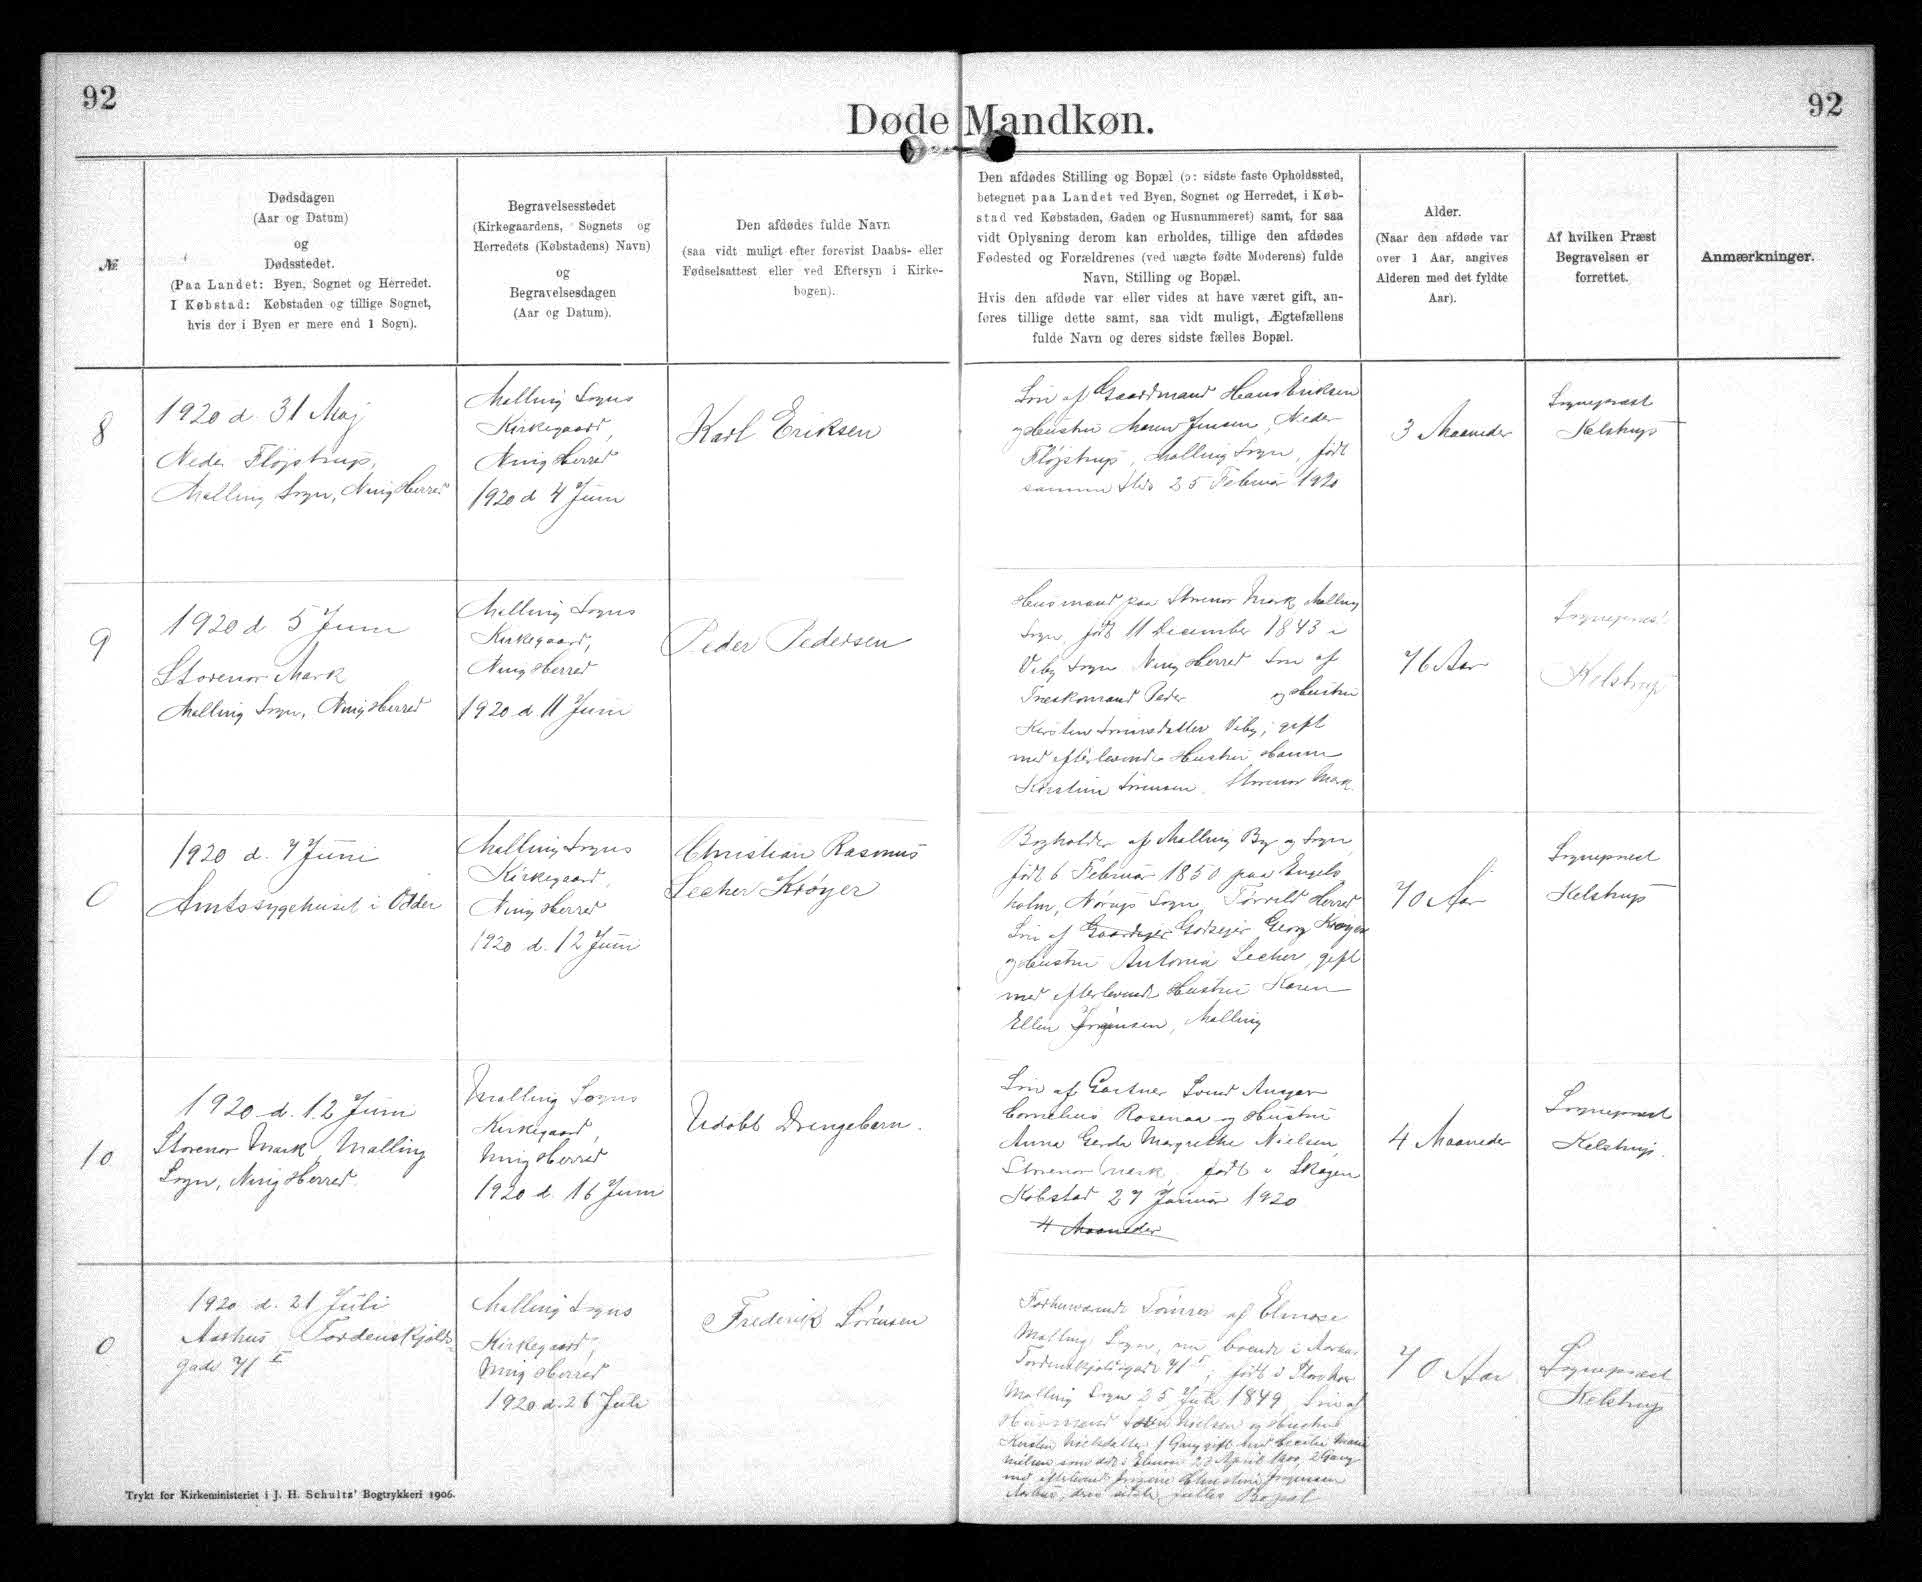 92
Døde Mandkøn.
92
№
Dødsdagen
(Aar og Datum)
og
Dødsstedet.
(Paa Landet: Byen, Sognet og Herredet.
I Købstad: Købstaden og tillige Sognet,
hvis der i Byen er mere end 1 Sogn).
Begravelsesstedet
(Kirkegaardens, Sognets og
Herredets (Købstadens) Navn)
og
Begravelsesdagen
(Aar og Datum).
Den afdødes fulde Navn
(saa vidt muligt efter forevist Daabs- eller
Fødselsattest eller ved Eftersyn i Kirke-
bogen).
Den afdødes Stilling og Bopæl (ɔ: sidste faste Opholdssted,
betegnet paa Landet ved Byen, Sognet og Herredet, i Køb-
stad ved Købstaden, Gaden og Husnummeret) samt, for saa
vidt Oplysning derom kan erholdes, tillige den afdødes
Fødested og Forældrenes (ved uægte fødte Moderens) fulde
Navn, Stilling og Bopæl.
Hvis den afdøde var eller vides at have været gift, an-
føres tillige dette samt, saa vidt muligt, Ægtefællens
fulde Navn og deres sidste fælles Bopæl.
Alder.
(Naar den afdøde var
over 1 Aar, angives
Alderen med det fyldte
Aar).
Af hvilken Præst
Begravelsen er
forrettet.
Anmærkninger.
8
1920 d. 31 Maj
Neder Fløjstrup,
Malling Sogn, Ning Herred
Malling Sogns
Kirkegaard,
Ning Herred
1920 d 4 Juni
Karl Eriksen
Søn af Gaardmand Hans Eriksen
og Hustru Maren Jensen, Neder
Fløjstrup, Malling Sogn, født
samme Sted 25 Februar 1920
3 Maaneder
Sognepræst
Kelstrup
9
1920 d 5 Juni
Storenor Mark
Malling Sogn, Ning Herred
Malling Sogns
Kirkegaard,
Ning Herred
1920 d 11 Juni
Peder Pedersen
Husmand paa Storenor Mark Malling
Sogn, født 11 December 1843 i
Viby Sogn Ning Herred Søn af
Træskomand Peder og Hustru
Kirsten Viby, gift
med efterlevende Hustru Hanne
Kirstine Sørensen, Storenor Mark.
76 Aar
Sognepræst
Kelstrup
0
1920 d. 7 Juni
Amtssygehuset i Odder
Malling Sogns
Kirkegaard,
Ning Herred
1920 d. 12 Juni
Christian Rasmus
Lecher Krøyer
Bogholder af Malling By og Sogn,
født 6 Februar 1850 paa Engels-
holm, Nørup Sogn, Tørrild Herred
Søn af Gaardejer Godsejer Georg Krøyer
og Hustru Antonia Lecher, gift
med efterlevende Hustru Karen
Ellen Jørgensen, Malling
70 Aar
Sognepræst
Kelstrup
10
1920 d. 12 Juni
Storenor Mark, Malling
Sogn, Ning Herred.
Malling Sogns
Kirkegaard,
Ning Herred
1920 d. 16 Juni
Udøbt Drengebarn.
Søn af Gartner Svend Ansgar
Cornelius Rosenaa og Hustru
Anna Gerda Margrethe Nielsen,
Storenor Mark, født i Skagen
Købstad 27 Januar 1920
4 Maaneder
4 Maaneder
Sognepræst
Kelstrup.
0
1920 d. 21 Juli
Aarhus, Tordenskjolds-
gade 71 I
Malling Sogns
Kirkegaard,
Ning Herred
1920 d. 26 Juli
Frederik Sørensen
Forhenværende Tømrer af Elmose
Malling Sogn, nu boende i Aarhus
Tordenskjoldsgade 71 I, født i
Malling Sogn 25 Juli 1849, Søn af
Husmand Søren Nielsen og Hustru
Kirsten Nielsdatter, 1 Gang gift med Cecilie Marie
Nielsen som døde i Elmose 23 April 1900, 2 Gang
med efterlevende Christine Jørgensen
Aarhus, deres sidste fælles Bopæl
70 Aar
Sognepræst
Kelstrup
Trykt for Kirkeministeriet i J. H. Schultz' Bogtrykkeri 1906.